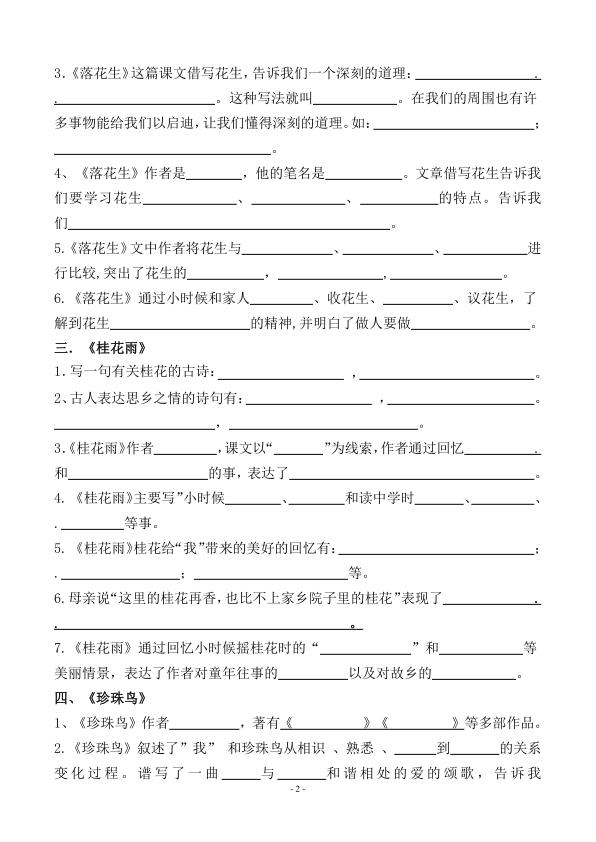 3.《落花生》这篇课文借写花生，告诉我们一个深刻的道理：____________________.
.____________________。这种写法就叫__________。在我们的周围也有许
多事物能给我们以启迪，让我们懂得深刻的道理。如：____________________；
____________________。
4、《落花生》作者是_______，他的笔名是_________。文章借写花生告诉我
们要学习花生___________、___________、_________的特点。告诉我
们________________________________________。
5.《落花生》文中作者将花生与___________、___________、__________进
行比较,突出了花生的_________，____________,______________。
6.《落花生》通过小时候和家人_______、收花生、________、议花生，了
解到花生________________的精神,并明白了做人要做______________。
三．《桂花雨》
1.写一句有关桂花的古诗：_______________，____________________。
2、古人表达思乡之情的诗句有：_______________，_________________。
____________________，______________________。
3.《桂花雨》作者_______,课文以“______”为线索,作者通过回忆_________.
和________________的事,表达了____________________________。
4.《桂花雨》主要写”小时候_______、_______和读中学时______、_______、
._______等事。
5.《桂花雨》桂花给“我”带来的美好的回忆有：______________________；
.______________；__________________等。
6.母亲说“这里的桂花再香,也比不上家乡院子里的桂花”表现了___________.
.__________________________________。
7.《桂花雨》通过回忆小时候摇桂花时的“___________”和__________等
美丽情景，表达了作者对童年往事的________以及对故乡的__________。
四、《珍珠鸟》
1、《珍珠鸟》作者________,著有《________》《________》等多部作品。
2.《珍珠鸟》叙述了”我” 和珍珠鸟从相识 、熟悉 、_____到______的关系
变化过程。谱写了一曲_____与______和谐相处的爱的颂歌，告诉我
- 2 -